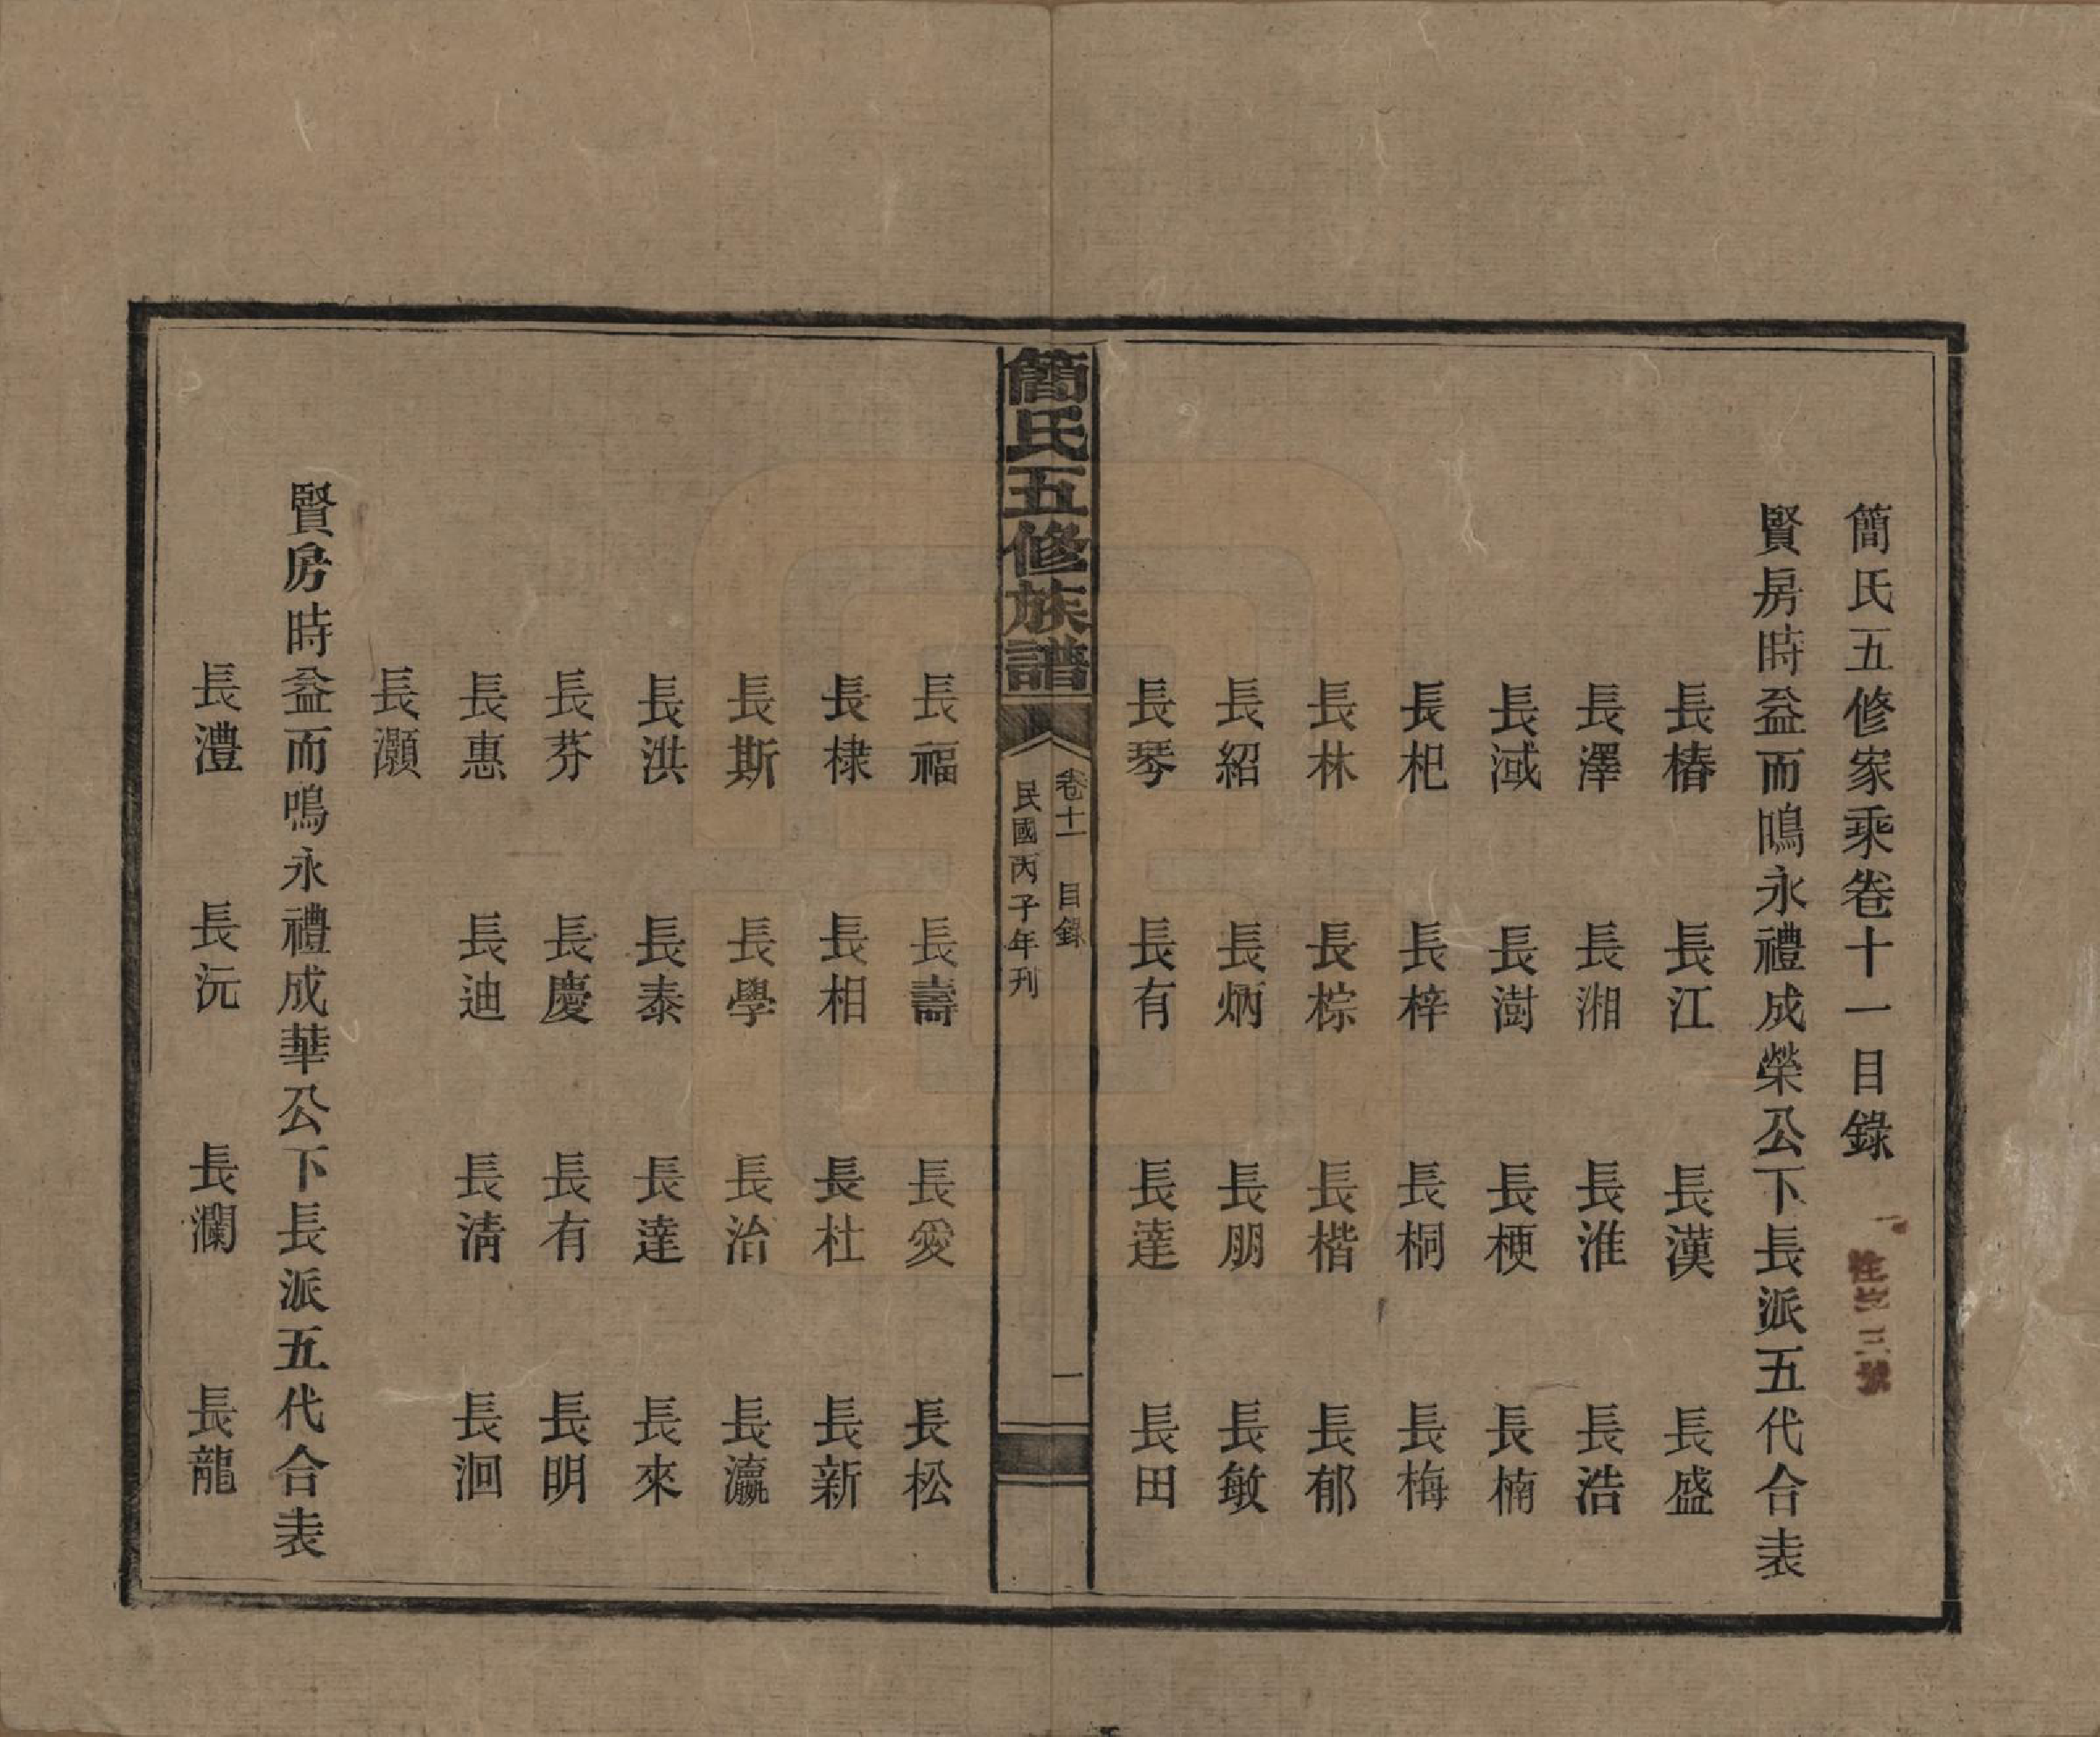 簡氏五修家乘卷十一目錄
賢房時益而鳴永禮成榮公下長派五代合表
長椿 長江 長漢 長盛
長澤 長湘 長淮 長浩
長淢 長澍 長梗 長楠
長杞 長梓 長桐 長梅
長林 長棕 長楷 長郁
長紹 長炳 長朋 長敏
長琴 長有 長達 長田
簡氏五修族譜
卷十一 目錄 一
民國丙子年刊
長福 長壽 長愛 長松
長棣 長相 長杜 長新
長斯 長學 長治 長瀛
長洪 長泰 長達 長來
長芬 長慶 長有 長明
長惠 長迪 長清 長洄
長灝
賢房時益而鳴永禮成華公下長派五代合表
長澧 長沅 長瀾 長龍